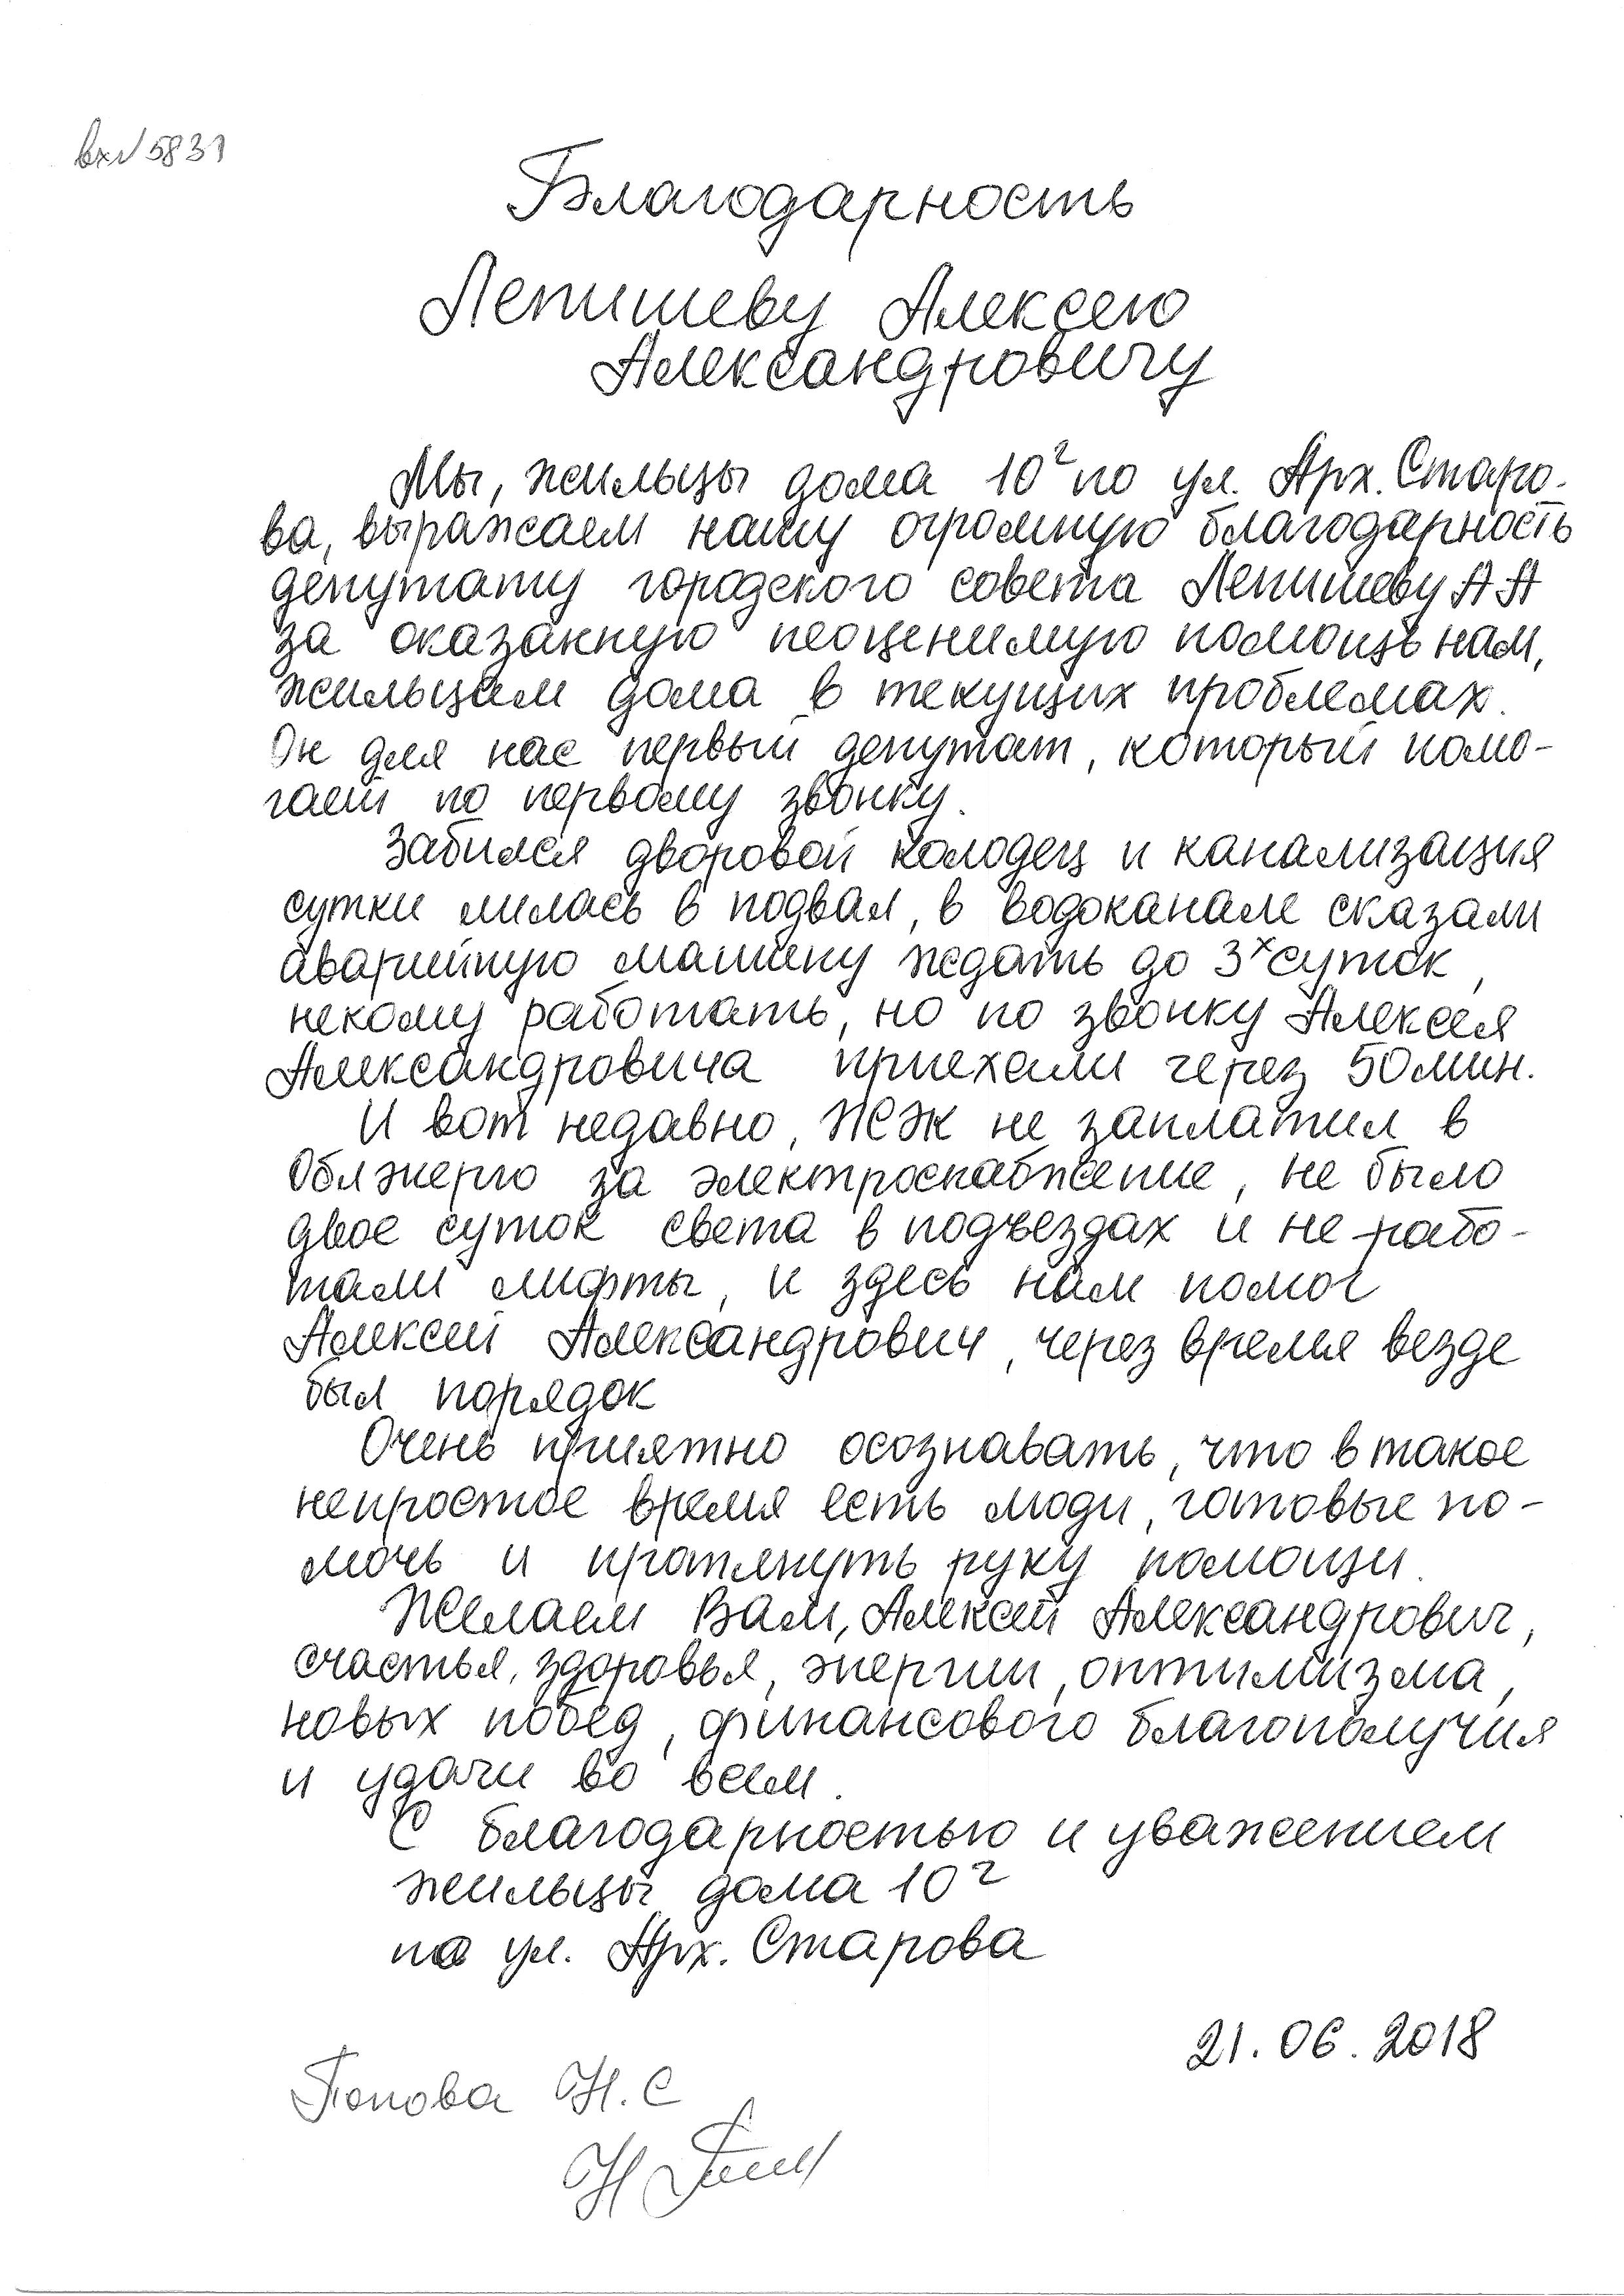 вх√5831
Благодарность
Лепишеву Алексею
Александровичу
Мы, жильцы дома 10г по ул. Арх. Старо-
ва, выражаем нашу огромную благодарность
депутату городского совета Лепишеву АА
за оказанную неоценимую помощь нам,
жильцам дома в текущих проблемах.
Он для нас первый депутат, который помо-
гает по первому звонку.
Забился дворовой колодец и канализация
сутки лилась в подвал, в водоканале сказали
аварийную машину ждать до 3х суток,
некому работать, но по звонку Алексея
Александровича приехали через 50мин.
И вот недавно, ЖЭЖ не заплатил в
Облэнерго за электроснабжение, не было
двое суток света в подъездах и не рабо-
тали лифты, и здесь нам помог
Алексей Александрович, через время везде
был порядок
Очень приятно осознавать, что в такое
непростое время есть люди, готовые по-
мочь и протянуть руку помощи.
Желаем Вам, Алексей Александрович,
счастья, здоровья, энергии, оптимизма,
новых побед, финансового благополучия
и удачи во всем.
С благодарностью и уважением
жильцы дома 10г
по ул. Арх. Старова
21.06.2018
Попова Н.С